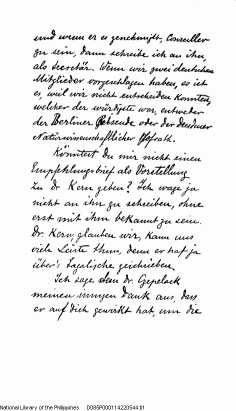 und wenn er es genehmigt, Conseiller
zu sein, dann schreibe ich an ihn,
als Secretär. Wenn wir zwei deutschen
Mitglieder vorgeschlagen haben, es ist
es, weil wir nicht entscheiden konnten,
welcher der würdigste war, entweder
der Berliner Reisende oder der Dresdner
Naturwissenschaftlicher Hofrath.
Könntest Du mir nicht einen
Empfehlungsbrief als Vorstellung
zu Dr Kern geben? Ich wage ja
nicht an ihn zu schreiben, ohne
erst mit ihm bekannt zu sein.
Dr. Kern, glauben wir, kann uns
viele Leute thun, denn er hat ja
über's Tagalische geschrieben.
Ich sage dem Dr.
meinen innigen Dank aus, dass
er auf dich gewirkt hat um die
National Library of the Philippines